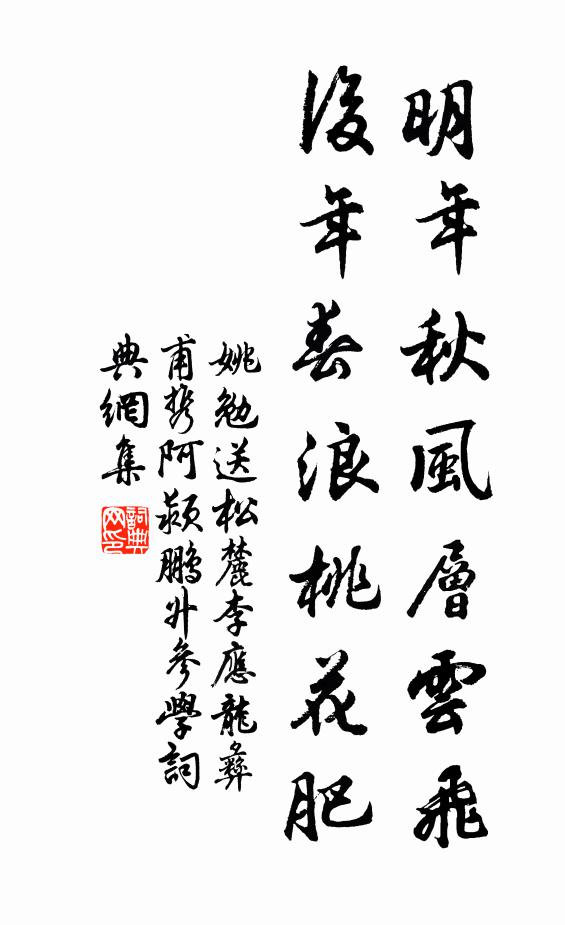 明年秋風層雲飛
後年春浪桃花肥
姚勉送松麓李應龍彝
甫携阿蘋鵬升參學詞
典網集
詞典网印